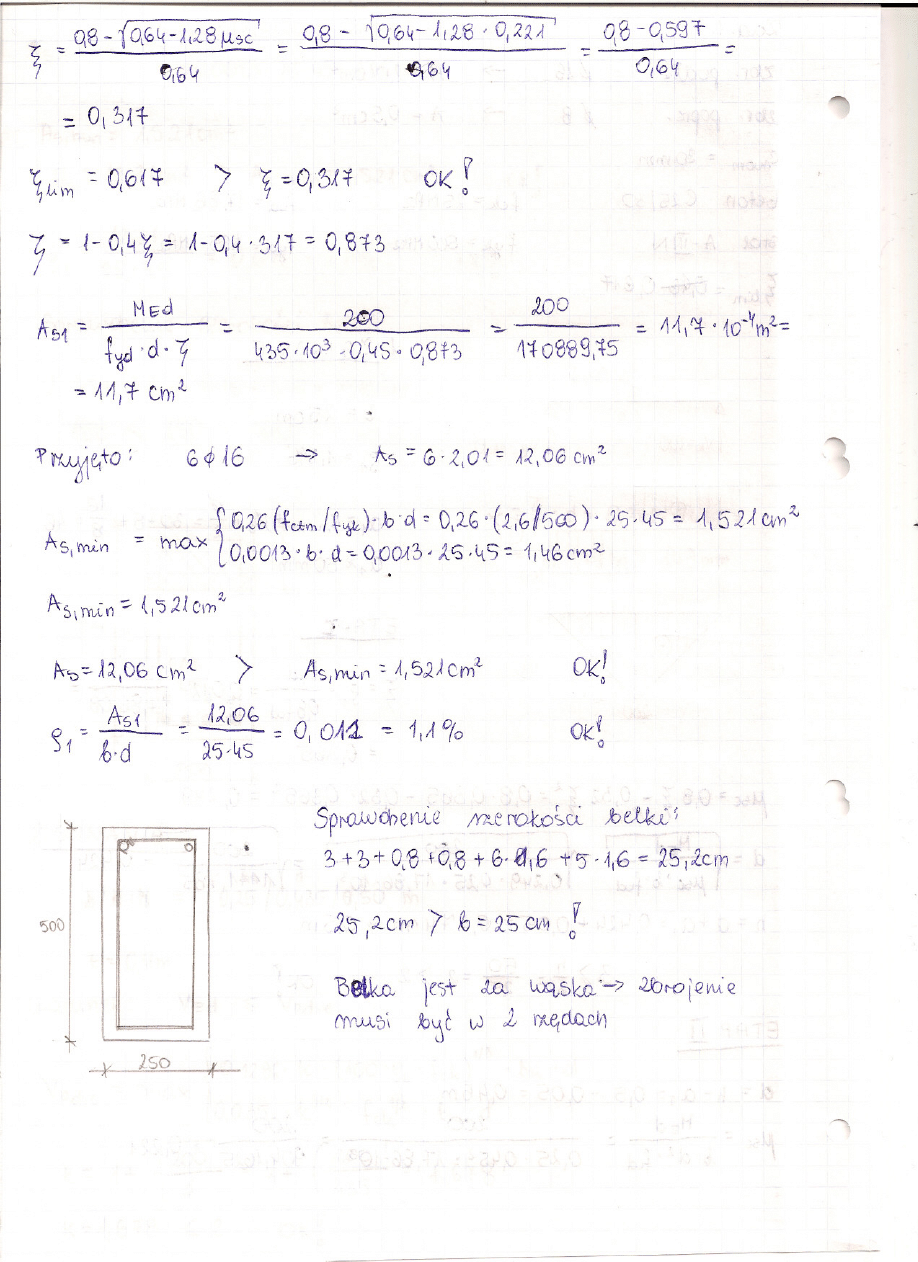 ξ = (0,8-√(0,64-1,28μsc))/0,64 = (0,8-√(0,64-1,28·0,221))/0,64 = (0,8-0,597)/0,64 =
= 0,317
ξlim = 0,617 > ξ=0,317 OK!
ζ = 1-0,4ξ = 1-0,4·317 = 0,873
As1 = MEd/(fyd·d·ζ) = 200/(435·10³·0,45·0,873) = 200/170889,75 = 11,7·10⁻⁴m² =
= 11,7 cm²
Przyjęto: 6ϕ16 → As = 6·2,01 = 12,06 cm²
As,min = max { 0,26(fctm/fyk)·b·d = 0,26·(2,6/500)·25·45 = 1,521cm²
0,0013·b·d = 0,0013·25·45 = 1,46cm²
As,min = 1,521cm²
As=12,06 cm² > As,min = 1,521cm² OK!
ρ1 = As1/(b·d) = 12,06/(25·45) = 0,011 = 1,1% OK!
Sprawdzenie szerokości belki:
3+3+0,8+0,8+6·1,6+5·1,6 = 25,2cm
25,2cm > b = 25cm !
Belka jest za wąska → zbrojenie
musi być w 2 rzędach
500
250